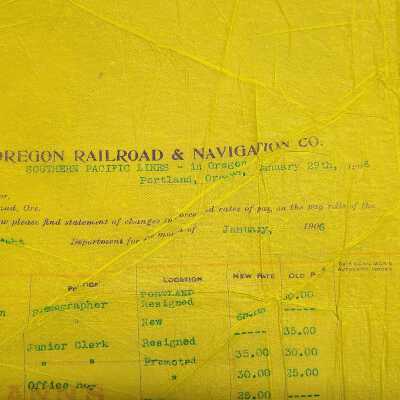 OREGON RAILROAD & NAVIGATION CO.
SOUTHERN PACIFIC LINES - in Oregon
January 29th,
Portland, Oregon,
please find statement of changes in force and rates of pay, on the pay rolls of the
Department for the month of January, 1906
LOCATION NEW RATE OLD
PORTLAND
Stenographer Resigned 50.00
New 60.00 -----
Junior Clerk Resigned ----- 35.00
" " Promoted 35.00 30.00
" 30.00 25.00
Office Boy ----- 25.00